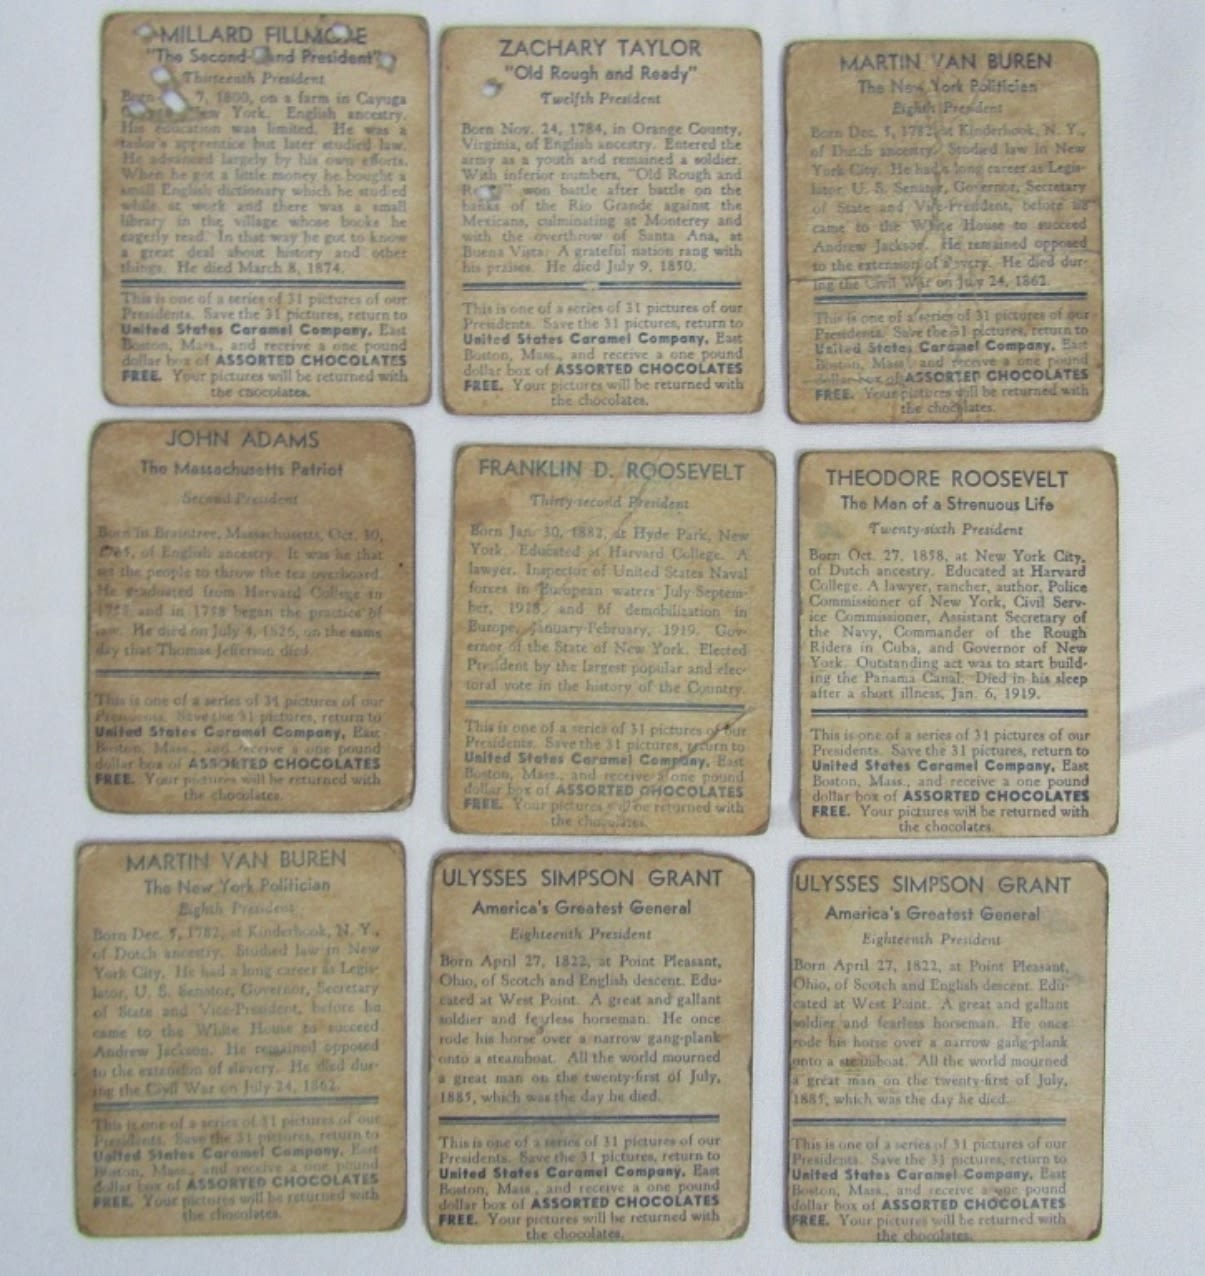 MILLARD FILLMORE
"The Second-        President"
Thirteenth President
Born      7, 1800, on a farm in Cayuga
      New York. English ancestry.
His education was limited. He was a
tailor's apprentice but later studied law.
He advanced largely by his own efforts.
When he got a little money he bought a
small English dictionary which he studied
while at work and there was a small
library in the village whose books he
eagerly read. In that way he got to know
a great deal about history and other
things. He died March 8, 1874.
This is one of a series of 31 pictures of our
Presidents. Save the 31 pictures, return to
United States Caramel Company, East
Boston, Mass., and receive a one pound
dollar box of ASSORTED CHOCOLATES
FREE. Your pictures will be returned with
the chocolates.
ZACHARY TAYLOR
"Old Rough and Ready"
Twelfth President
Born Nov. 24, 1784, in Orange County,
Virginia, of English ancestry. Entered the
army as a youth and remained a soldier.
With inferior numbers, "Old Rough and
      won battle after battle on the
banks of the Rio Grande against the
Mexicans, culminating at Monterey and
with the overthrow of Santa Ana, at
Buena Vista. A grateful nation rang with
his praises. He died July 9, 1850.
This is one of a series of 31 pictures of our
Presidents. Save the 31 pictures, return to
United States Caramel Company, East
Boston, Mass., and receive a one pound
dollar box of ASSORTED CHOCOLATES
FREE. Your pictures will be returned with
the chocolates.
MARTIN VAN BUREN
The New York Politician
Eighth President
Born Dec. 5, 1782, at Kinderhook, N. Y.,
of Dutch ancestry. Studied law in New
York City. He had a long career as Legis-
lator, U. S. Senator, Governor, Secretary
of State and Vice-President, before he
came to the White House to succeed
Andrew Jackson. He remained opposed
to the extension of slavery. He died dur-
ing the Civil War on July 24, 1862.
This is one of a series of 31 pictures of our
Presidents. Save the 31 pictures, return to
United States Caramel Company, East
Boston, Mass., and receive a one pound
dollar box of ASSORTED CHOCOLATES
FREE. Your pictures will be returned with
the chocolates.
JOHN ADAMS
The Massachusetts Patriot
Second President
Born in Braintree, Massachusetts, Oct. 30,
      of English ancestry. It was he that
set the people to throw the tea overboard.
He graduated from Harvard College in
      and in 1758 began the practice of
law. He died on July 4, 1826, on the same
day that Thomas Jefferson died.
This is one of a series of 31 pictures of our
Presidents. Save the 31 pictures, return to
United States Caramel Company, East
Boston, Mass., and receive a one pound
dollar box of ASSORTED CHOCOLATES
FREE. Your pictures will be returned with
the chocolates.
FRANKLIN D. ROOSEVELT
Thirty-second President
Born Jan. 30, 1882, at Hyde Park, New
York. Educated at Harvard College. A
lawyer. Inspector of United States Naval
forces in European waters July-Septem-
ber, 1918, and of demobilization in
Europe, January-February, 1919. Gov-
ernor of the State of New York. Elected
President by the largest popular and elec-
toral vote in the history of the Country.
This is one of a series of 31 pictures of our
Presidents. Save the 31 pictures, return to
United States Caramel Company, East
Boston, Mass., and receive a one pound
dollar box of ASSORTED CHOCOLATES
FREE. Your pictures will be returned with
the chocolates.
THEODORE ROOSEVELT
The Man of a Strenuous Life
Twenty-sixth President
Born Oct. 27, 1858, at New York City,
of Dutch ancestry. Educated at Harvard
College. A lawyer, rancher, author, Police
Commissioner of New York, Civil Serv-
ice Commissioner, Assistant Secretary of
the Navy, Commander of the Rough
Riders in Cuba, and Governor of New
York. Outstanding act was to start build-
ing the Panama Canal. Died in his sleep
after a short illness, Jan. 6, 1919.
This is one of a series of 31 pictures of our
Presidents. Save the 31 pictures, return to
United States Caramel Company, East
Boston, Mass., and receive a one pound
dollar box of ASSORTED CHOCOLATES
FREE. Your pictures will be returned with
the chocolates.
MARTIN VAN BUREN
The New York Politician
Eighth President
Born Dec. 5, 1782, at Kinderhook, N. Y.,
of Dutch ancestry. Studied law in New
York City. He had a long career as Legis-
lator, U. S. Senator, Governor, Secretary
of State and Vice-President, before he
came to the White House to succeed
Andrew Jackson. He remained opposed
to the extension of slavery. He died dur-
ing the Civil War on July 24, 1862.
This is one of a series of 31 pictures of our
Presidents. Save the 31 pictures, return to
United States Caramel Company, East
Boston, Mass., and receive a one pound
dollar box of ASSORTED CHOCOLATES
FREE. Your pictures will be returned with
the chocolates.
ULYSSES SIMPSON GRANT
America's Greatest General
Eighteenth President
Born April 27, 1822, at Point Pleasant,
Ohio, of Scotch and English descent. Edu-
cated at West Point. A great and gallant
soldier and fearless horseman. He once
rode his horse over a narrow gang-plank
onto a steamboat. All the world mourned
a great man on the twenty-first of July,
1885, which was the day he died.
This is one of a series of 31 pictures of our
Presidents. Save the 31 pictures, return to
United States Caramel Company, East
Boston, Mass., and receive a one pound
dollar box of ASSORTED CHOCOLATES
FREE. Your pictures will be returned with
the chocolates.
ULYSSES SIMPSON GRANT
America's Greatest General
Eighteenth President
Born April 27, 1822, at Point Pleasant,
Ohio, of Scotch and English descent. Edu-
cated at West Point. A great and gallant
soldier and fearless horseman. He once
rode his horse over a narrow gang-plank
onto a steamboat. All the world mourned
a great man on the twenty-first of July,
1885, which was the day he died.
This is one of a series of 31 pictures of our
Presidents. Save the 31 pictures, return to
United States Caramel Company, East
Boston, Mass., and receive a one pound
dollar box of ASSORTED CHOCOLATES
FREE. Your pictures will be returned with
the chocolates.